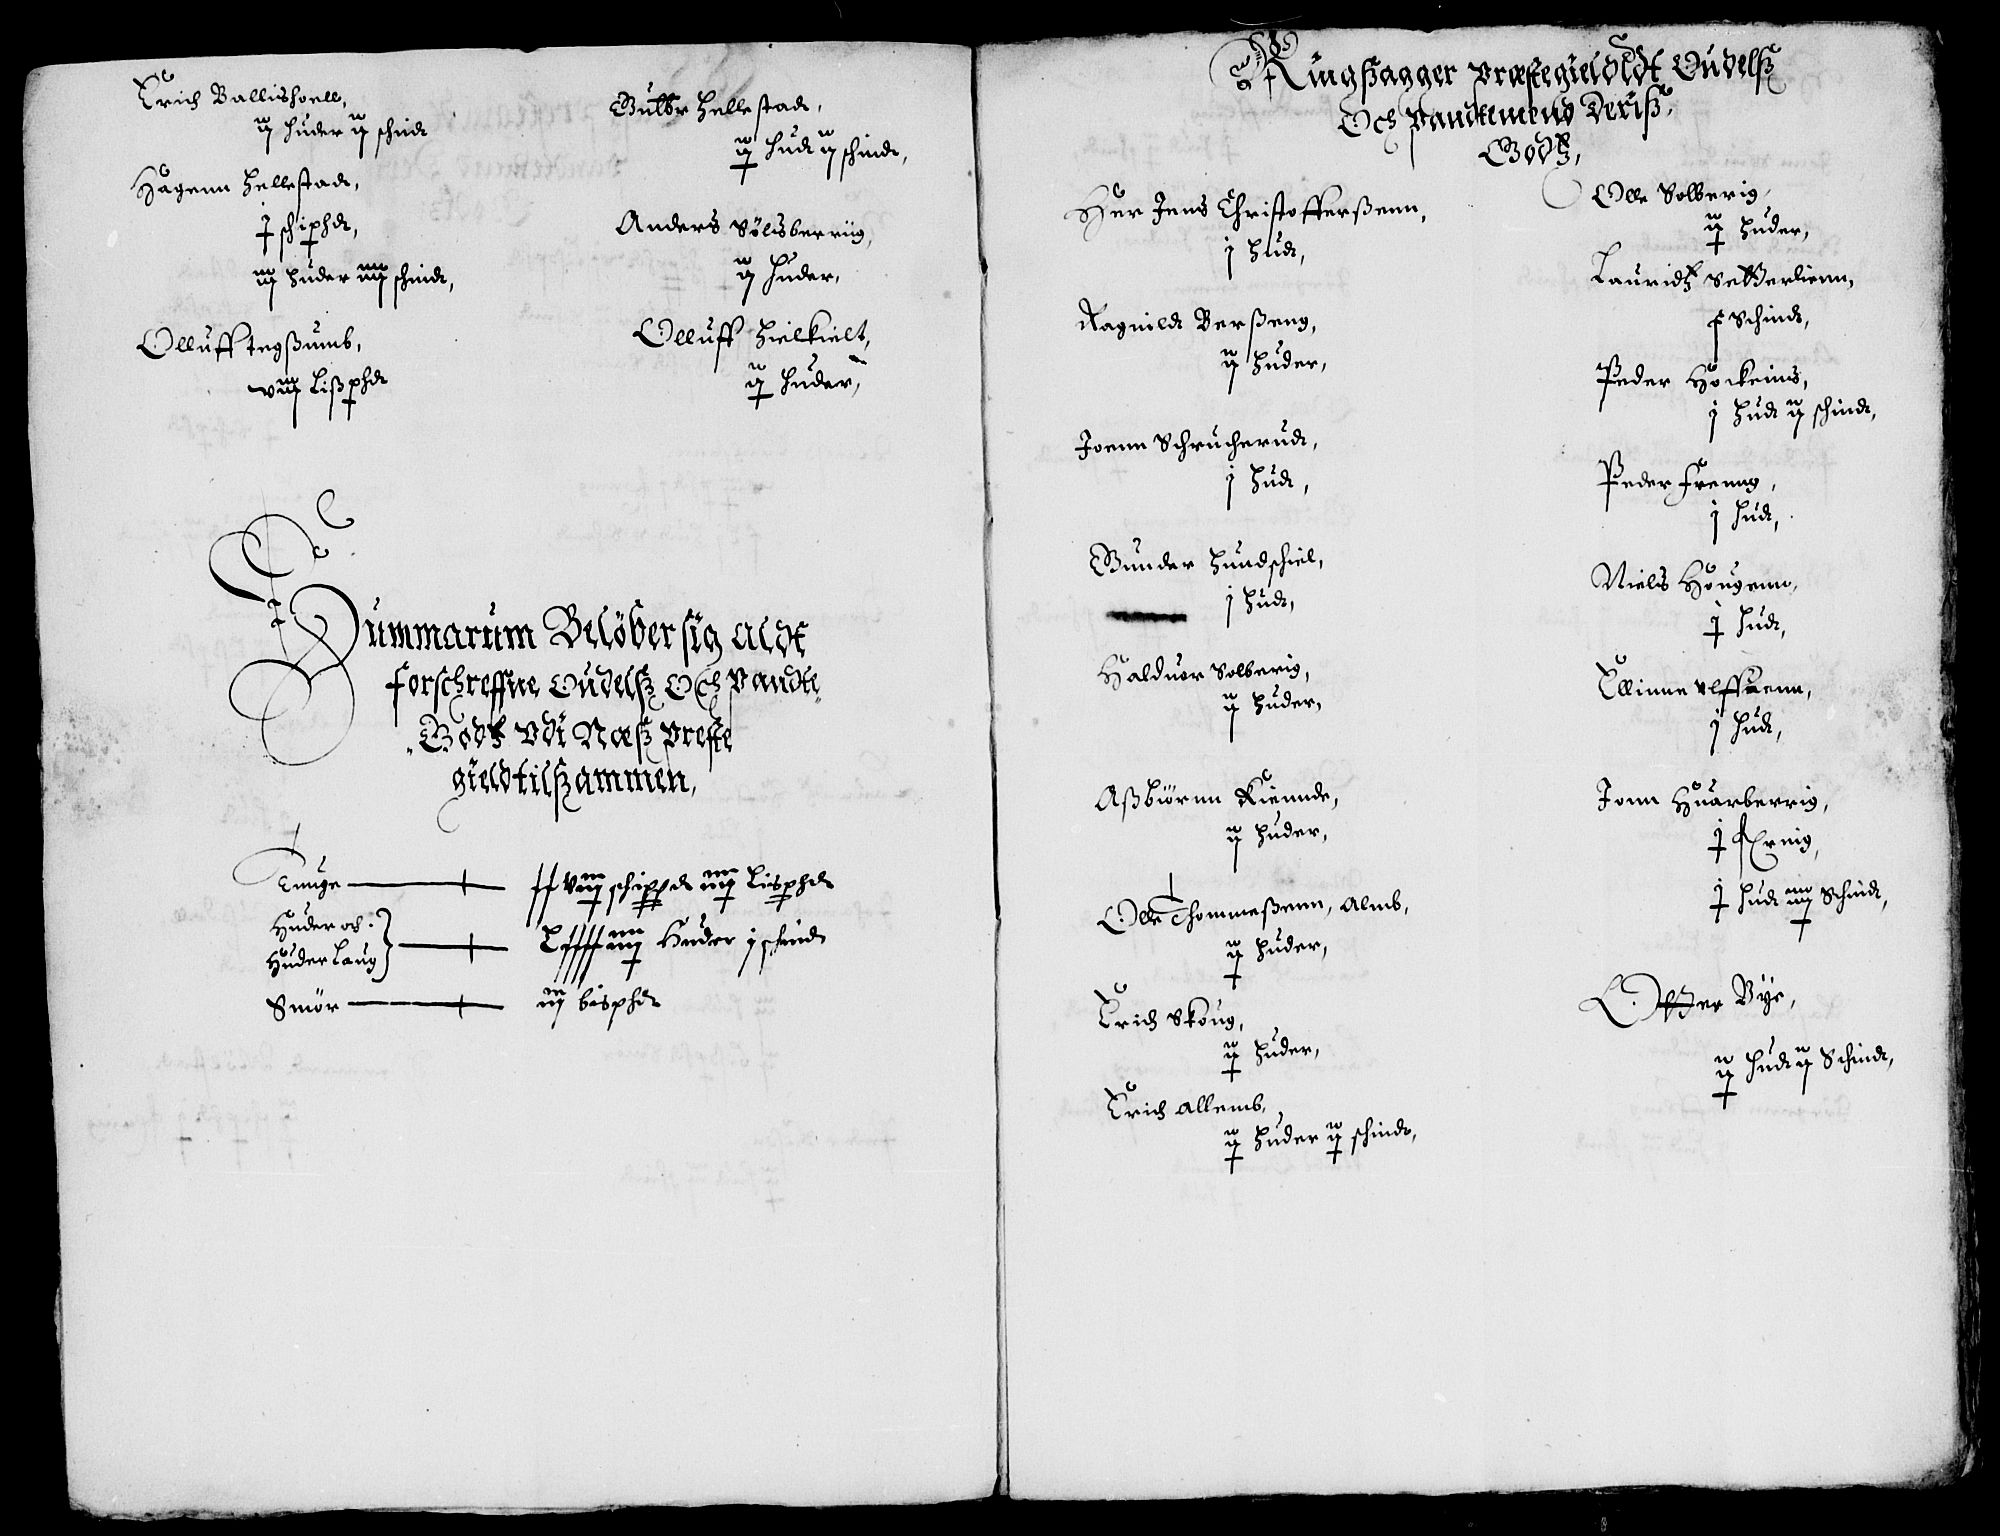 Erich Ballishoell,
ij huder ij schind
Hagenn Hellestad,
j schiphd,
iij huder iiij schind,
Olluff Jegßumb,
viij Lißphd
Gulbr Hellestad,
ij hud ij schind,
Anders Sölisberrüg,
ij huder,
Olluff Hielkielt,
ij huder,
Summarum Belöber sig aldt
forschreffne Oudelß Och Pandte
Godtz Vdi Næß Preste
gieldt tilßammen,
Tunge
schippd iiij Lisphd
Huder och
Huder Laug
Huder j schind
Smör
iij bisphd
Ringßagger Præstegieldt Oudelß
Och Pandtemend Deriß
Godtz,
Her Jens Christofferßenn,
j hud,
Ragnild Berßeng,
ij huder,
Joenn Schrucherud,
j hud,
Gunder Hundschiel,
j hud,
Halduor Solberig,
ij huder,
Aßbiörnn Kiennde,
ij huder,
Olle Thommeßenn, Almb,
ij huder,
Erich Skoug,
ij huder,
Erich Allemb,
ij huder ij schind,
Olle Solberig,
ij huder,
Lauridtz Setterlienn,
Schind,
Peder Hockeins,
j hud ij schind,
Peder Freang,
j hud,
Niels Hougenn,
j hud,
Ellinne Vlffuenn,
j hud,
Jonn Huarberrig,
j
j hud iiij Schind,
Otter Bye,
ij hud ij Schind,